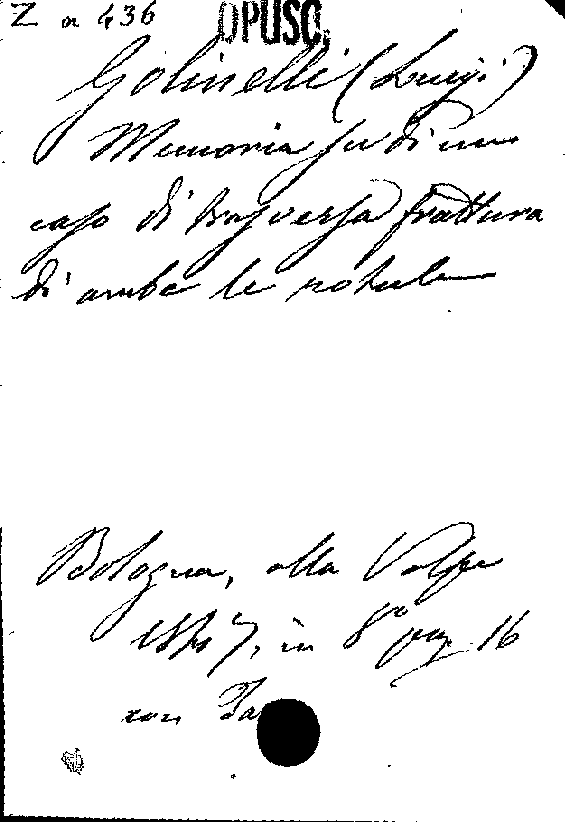 Z n 436
OPUSC.
Golinelli (Luigi)
Memoria su di un
caso di trasversa frattura
di ambe le rotule
Bologna, alla Volpe
1847, in 8° pag 16
con Ta